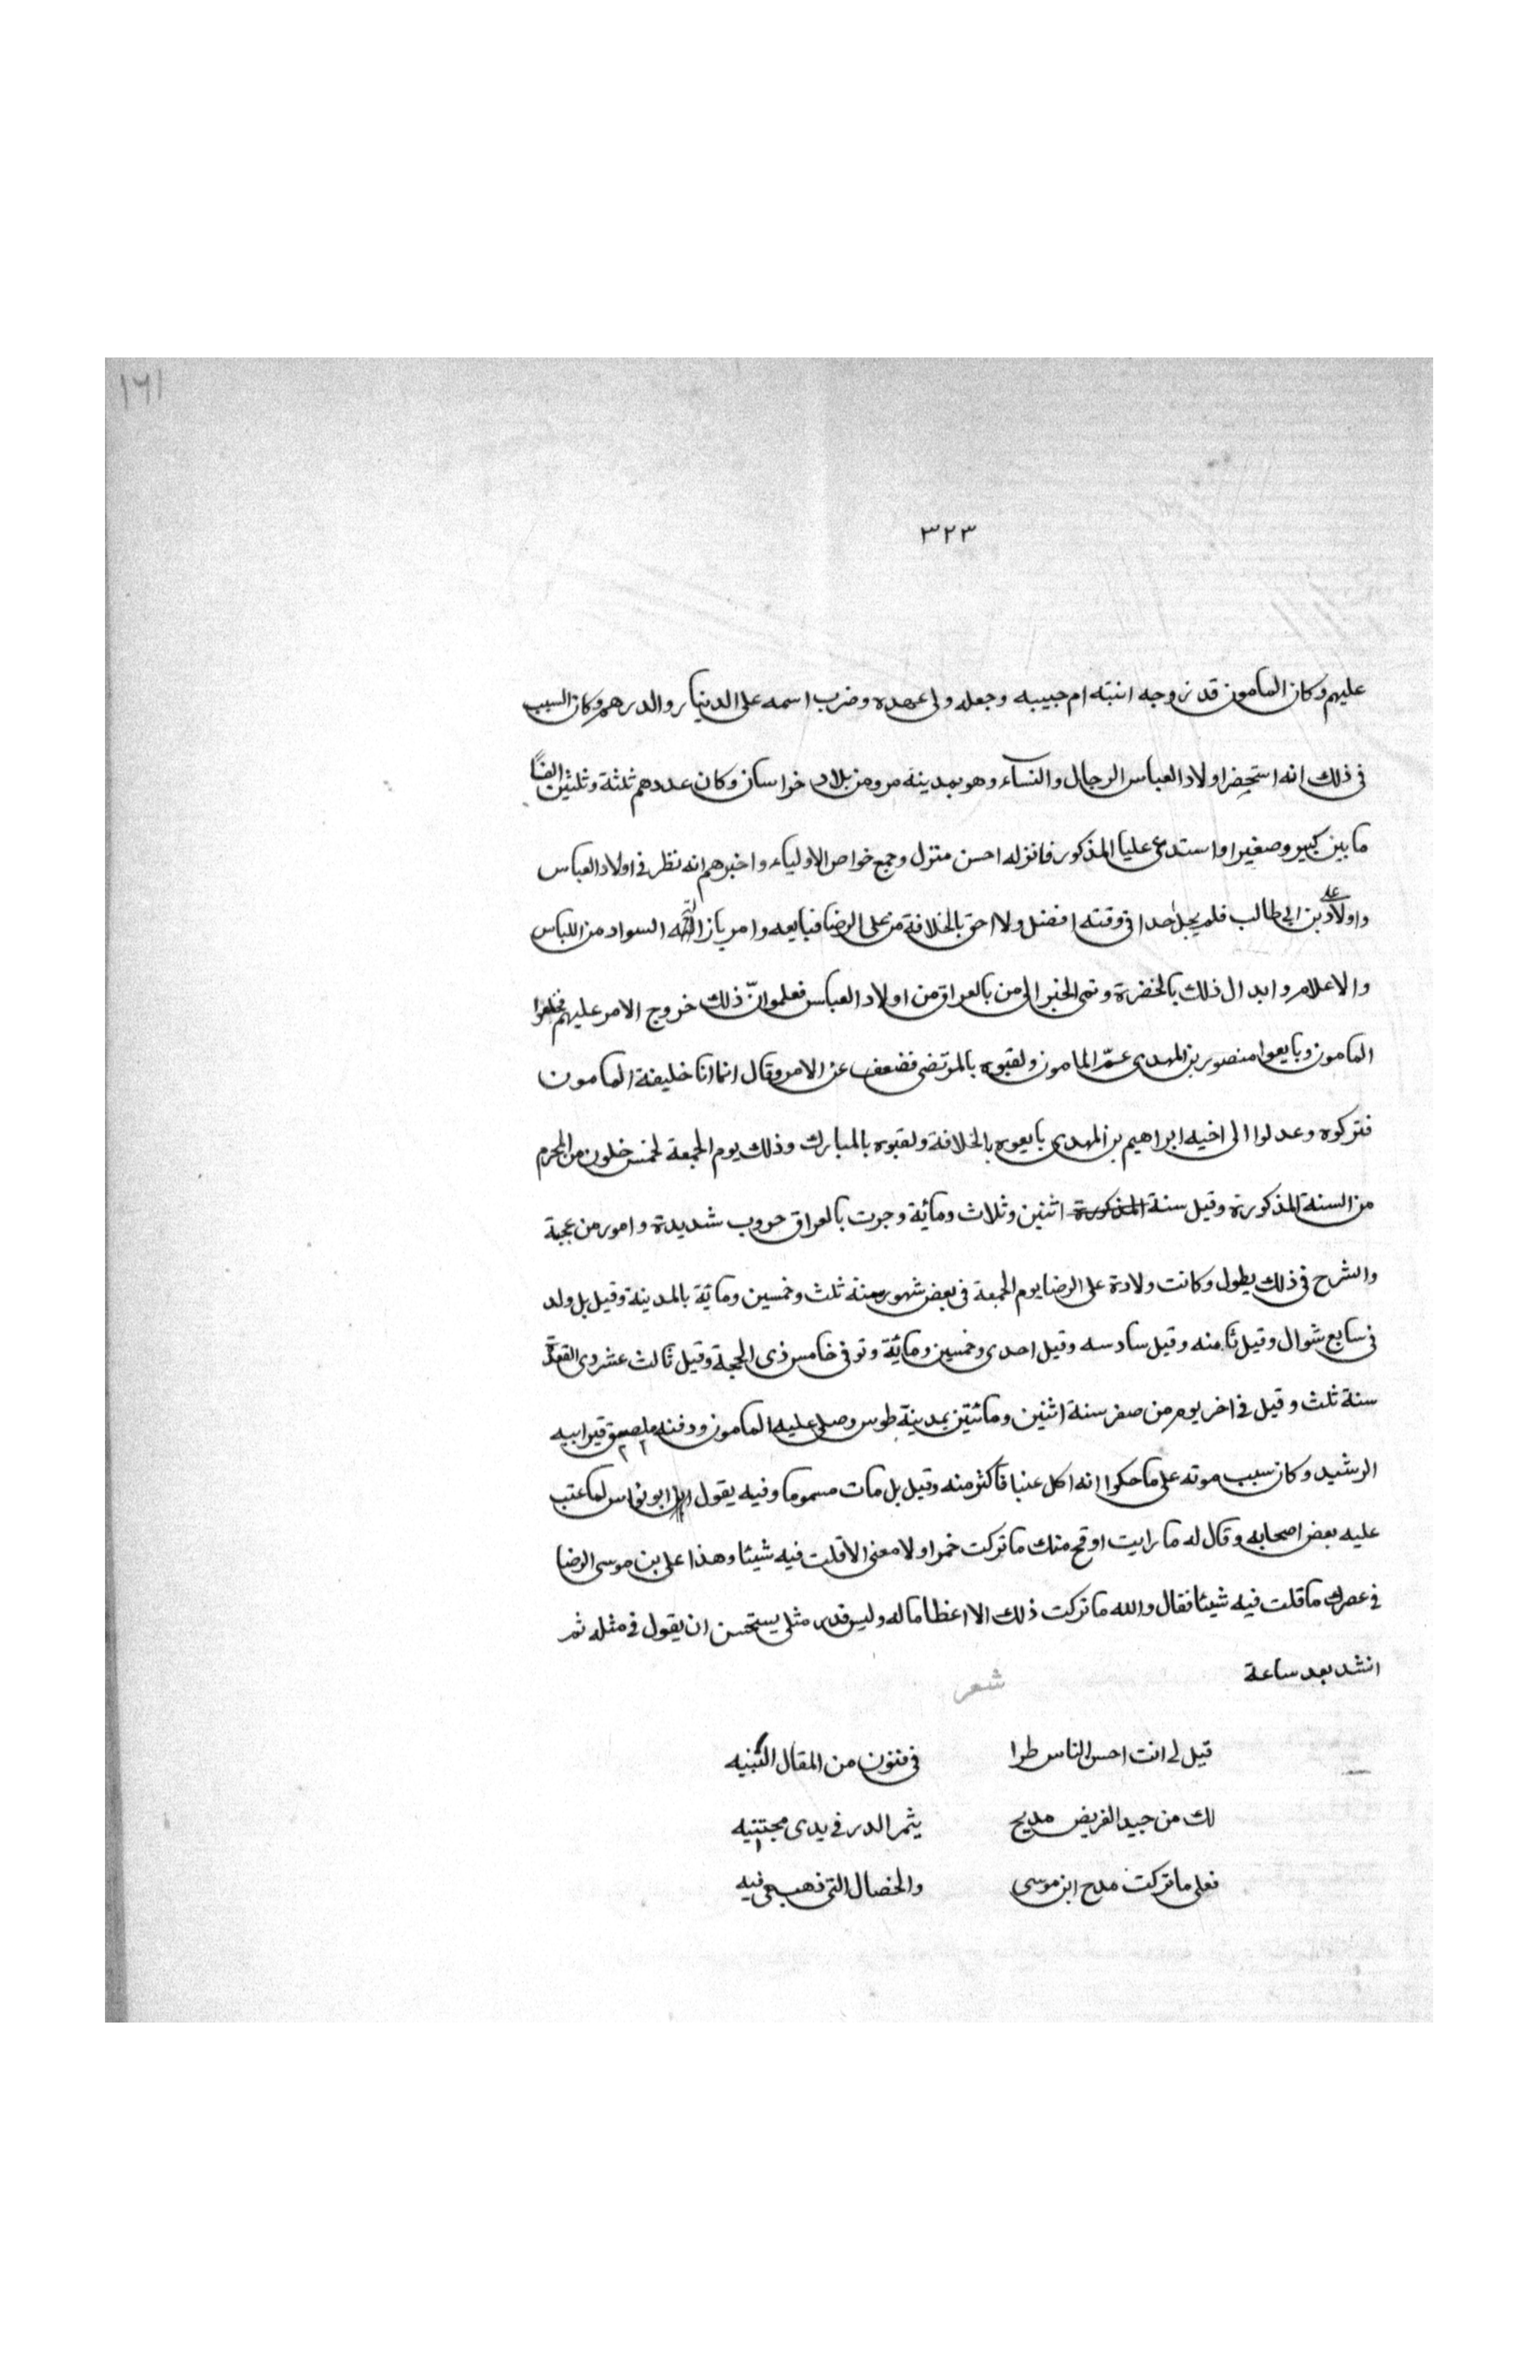 ١٦١
٣٢٣
عليهم وكان المامون قد زوجه ابنته ام حبيبه وجعله ولى عهده وضرب اسمه على الدينار والدرهم وكان السبب
فى ذلك انه استحضر اولاد العباس الرجال والنسآء وهو بمدينة مرو من بلاد خراسان وكان عددهم ثلثة وثلثين الفًا
ما بين كبير وصغير واستدعى عليا المذكور فانزله احسن منزل وجمع خواص الاولياء واخبرهم انه نظر فى اولاد العباس
واولاد على بن ابى طالب فلم يجد احدا فى وقته افضل ولا احق بالخلافة من على الرضا فبايعه وامر بازالة السواد من اللباس
والاعلام وابدال ذلك بالخضرة ونمى الخبر الى من بالعراق من اولاد العباس فعلموا انّ ذلك خروج الامر عليهم فخلعوا
المامون وبايعوا منصور بن المهدى عمّ المامون ولقبوه بالمرتضى فضعف عن الامر وقال انما انا خليفة المامون
فتركوه وعدلوا الى اخيه ابراهيم بن المهدى بايعوه بالخلافة ولقبوه بالمبارك وذلك يوم الجمعة لخمس خلون من المحرم
من السنة المذكورة وقيل سنة المذكورة اثنين وثلاث ومائة وجرت بالعراق حروب شديدة وامور من عجبة
والشرح فى ذلك يطول وكانت ولادة على الرضا يوم الجمعة فى بعض شهور سنة ثلث وخمسين ومائة بالمدينة وقيل بل ولد
فى سابع شوال وقيل ثامنه وقيل سادسه وقيل احدى وخمسين ومائة وتوفى خامس ذى الحجة وقيل ثالث عشر ذى القعدة
سنة ثلث وقيل فى اخر يوم من صفر سنة اثنين ومائتين بمدينة طوس وصلى عليه المامون ودفنه ملصق قبر ابيه
الرشيد وكان سبب موته على ما حكوا انه اكل عنبا فاكثر منه وقيل بل مات مسموما وفيه يقول ابو نواس لما عتب
عليه بعض اصحابه وقال له ما رايت اوقح منك ما تركت خمرا ولا معنى الا قلت فيه شيئا وهذا على بن موسى الرضا
فى عصرك ما قلت فيه شيئا فقال والله ما تركت ذلك الا اعظاما له وليس قدر مثلى يستحسن ان يقول فى مثله ثم
انشد بعد ساعة
شعر
قيل لى انت احسن الناس طرا فى فنون من المقال النبيه
لك من جيد القريض مديح يثمر الدر فى يدى مجتنيه
فعلى ما تركت مدح ابن موسى والخصال التى فيه